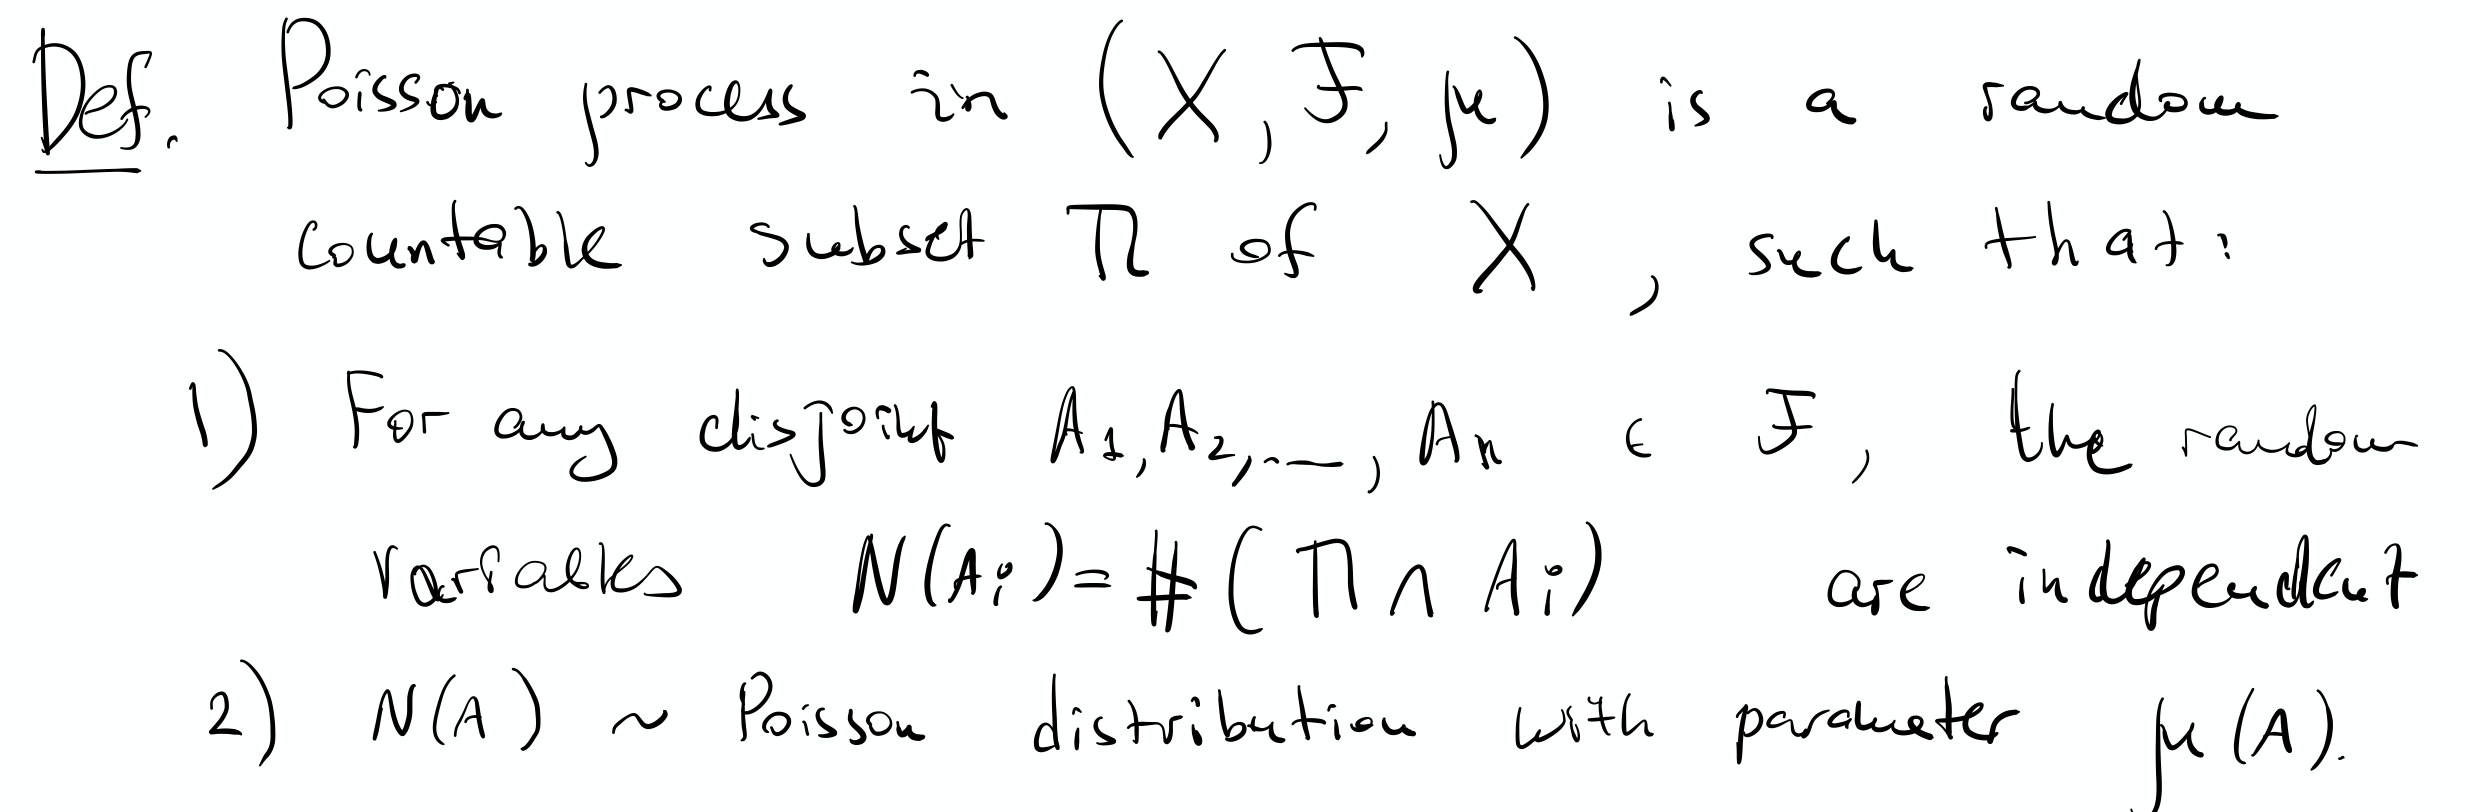 Def. Poisson process in (X, F, μ) is a random
countable subset Π of X, such that:
1) For any disjoint A₁, A₂, ..., Aₙ ∈ F, the random
variables N(Aᵢ) = #(Π ∩ Aᵢ) are independent
2) N(A) ~ Poisson distribution with parameter μ(A).